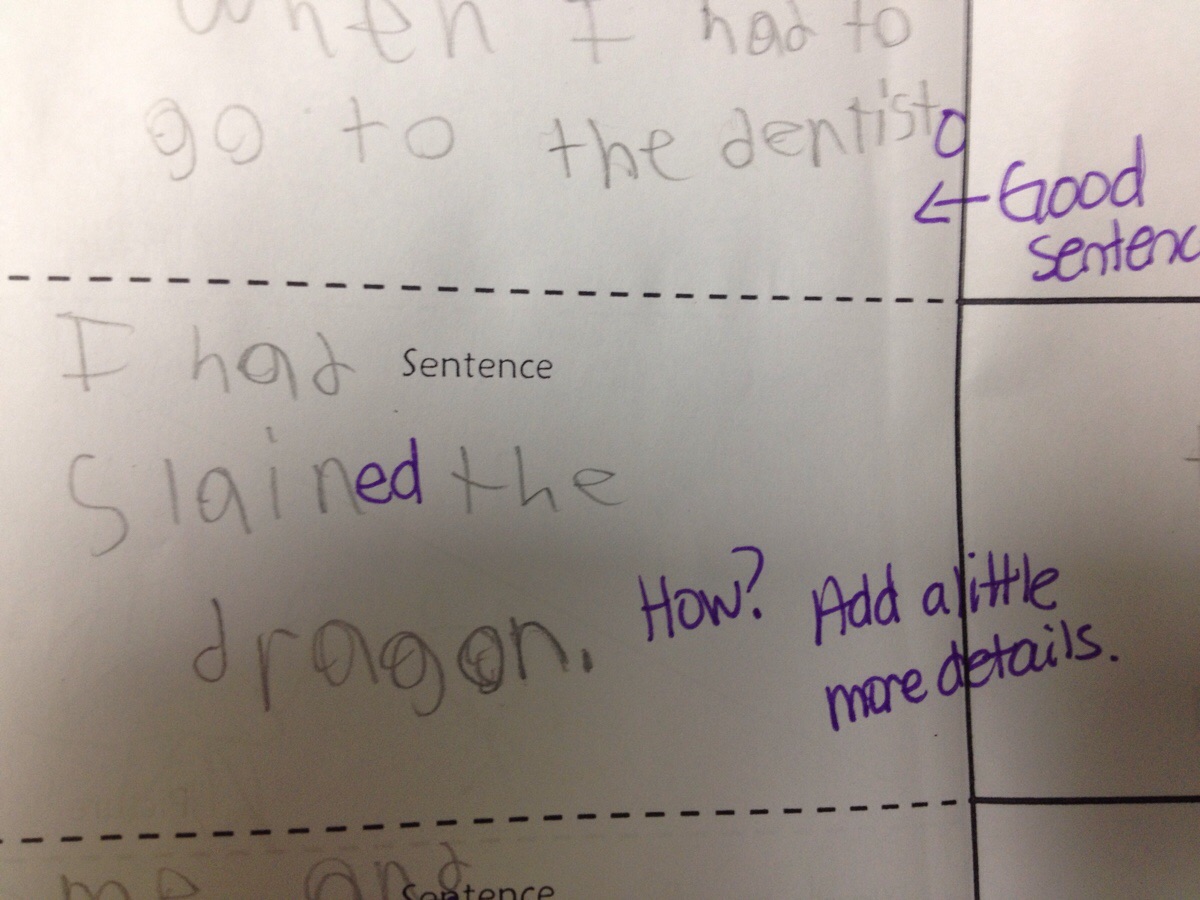 when I had to
go to the dentist
← Good
sentenc
I had Sentence
Slained the
dragon. How? Add a little
more details.
me and
Sentence